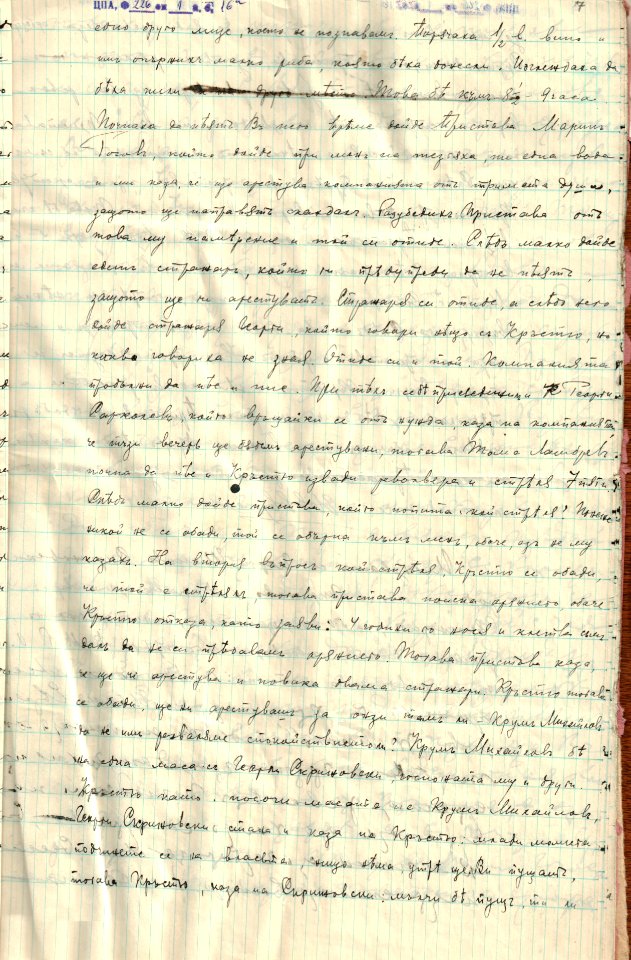 ЦПА, Ф 226 оп 1 а. е. 16
едно друго лице, което не познавамъ. Поръчаха 1/2 в. вино и
малко риба, която бѣха донесли. Изглеждаха да
бѣха пили Това бѣ къмъ 8½ – 9 часа.
Почнаха да пѣятъ. Въ това врѣме дойде Пристава Маринъ
който дойде при менъ на тезгяха, пи една вода
и ми каза, че ще арестува компанията отъ тримата души,
защото ще направятъ скандалъ. Разубедихъ Пристава отъ
това му намѣрение и той си отиде. Слѣдъ малко дойде
единъ стражаръ, който ги прѣдупреди да не пѣятъ,
защото ще ги арестуватъ. Стражаря си отиде, а слѣдъ него
дойде стражаря Георги, който говори нѣщо съ Кръстю, но
какво говориха не зная. Отиде си и той. Компанията
продължи да пѣе и пие. При тѣхъ се бѣ присъединилъ и Георги
който връщайки се отъ нужда, каза на компанията
че тъзи вечерь ще бъдемъ арестувани, тогава Тома
почна да пѣе и Кръстю извади револвера и стрѣля 7 пѫти.
Слѣдъ малко дойде пристава, който попита кой стрѣля? Понеже
никой не се обади, той се обърна къмъ менъ, обаче, азъ не му
казахъ. На втория въпросъ кой стрѣля, Кръстю се обади,
че той е стрѣлялъ, тогава пристава поиска оржжието обаче
Кръстю отказа, като заяви: 4 години го нося и клетва съмъ
далъ да не си прѣдавамъ оржжието. Тогава пристава каза,
че ще го арестува и повика двама стражари. Кръстю тогава
се обади, ще ли арестувашъ за онзи тамъ ли – Крумъ Михайловъ
да не им разваляме спокойствието? Крумъ Михайловъ бѣ
на една маса съ Георги Скрижовски, госпожата му и други.
Кръстю като посочи масата на Крумъ Михайловъ,
Георги Скрижовски стана и каза на Кръстю: млади момчета
подчинете се на властьта, нищо нѣма, утрѣ ще Ви пуснатъ,
тогава Кръстю, каза на Скрижовски: мълчи бѣ пущъ, ти ли